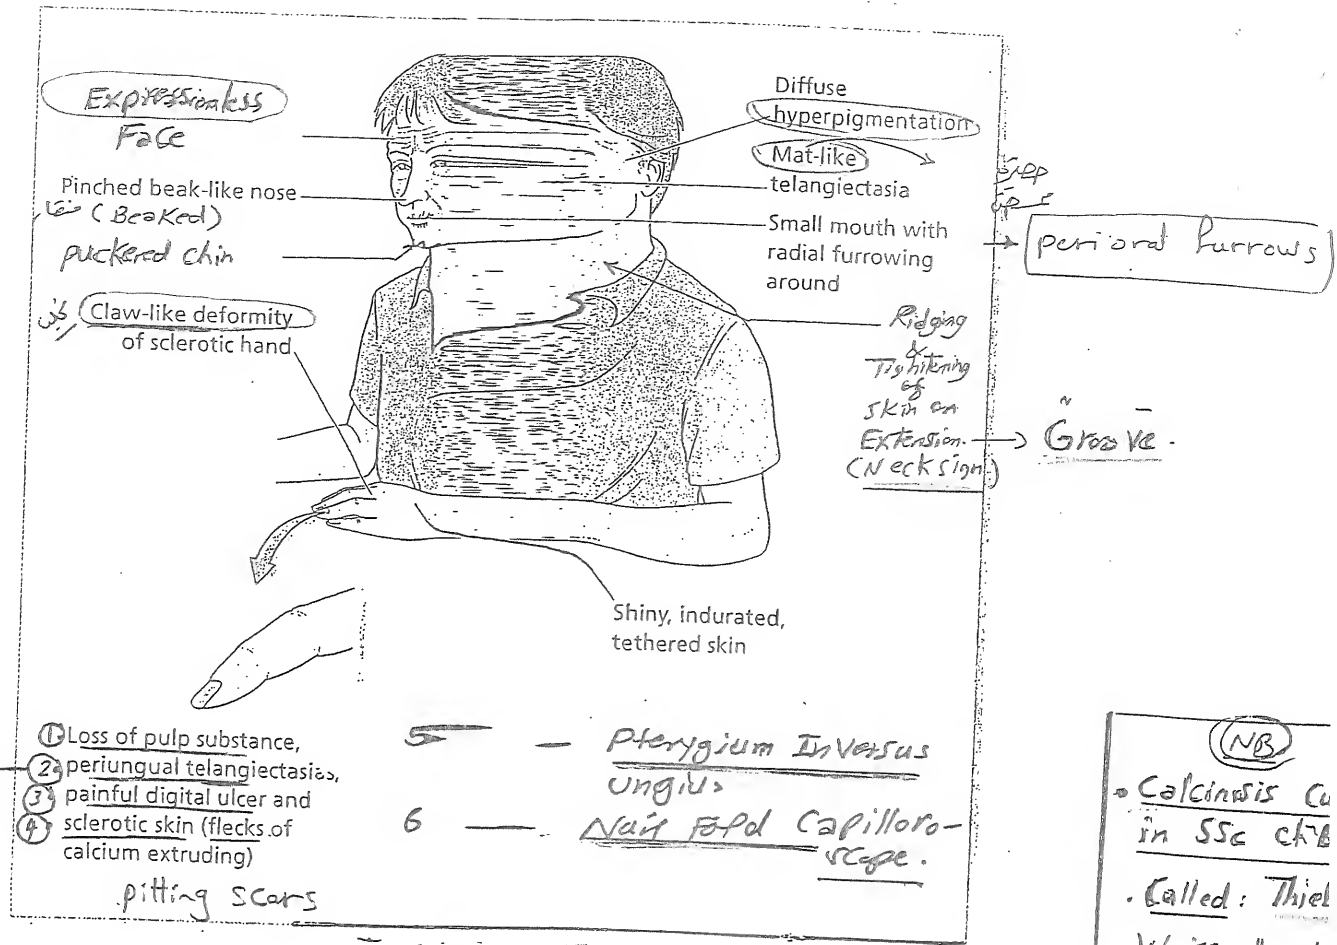 Expressionless
Face
Pinched beak-like nose
(Beaked)
puckered chin
Claw-like deformity
of sclerotic hand
Diffuse
hyperpigmentation
Mat-like
telangiectasia
Small mouth with
radial furrowing
around
perioral furrows
Ridging
&
Tightening
of
skin on
Extension.
(Neck sign)
Groove.
Shiny, indurated,
tethered skin
1 Loss of pulp substance,
2 periungual telangiectasias,
3 painful digital ulcer and
4 sclerotic skin (flecks of
calcium extruding)
pitting scars
5 — Pterygium Inversus
ungius
6 — Nail Fold Capilloro-
scope.
NB
Calcinosis Cu
in SSc
Called: Thie